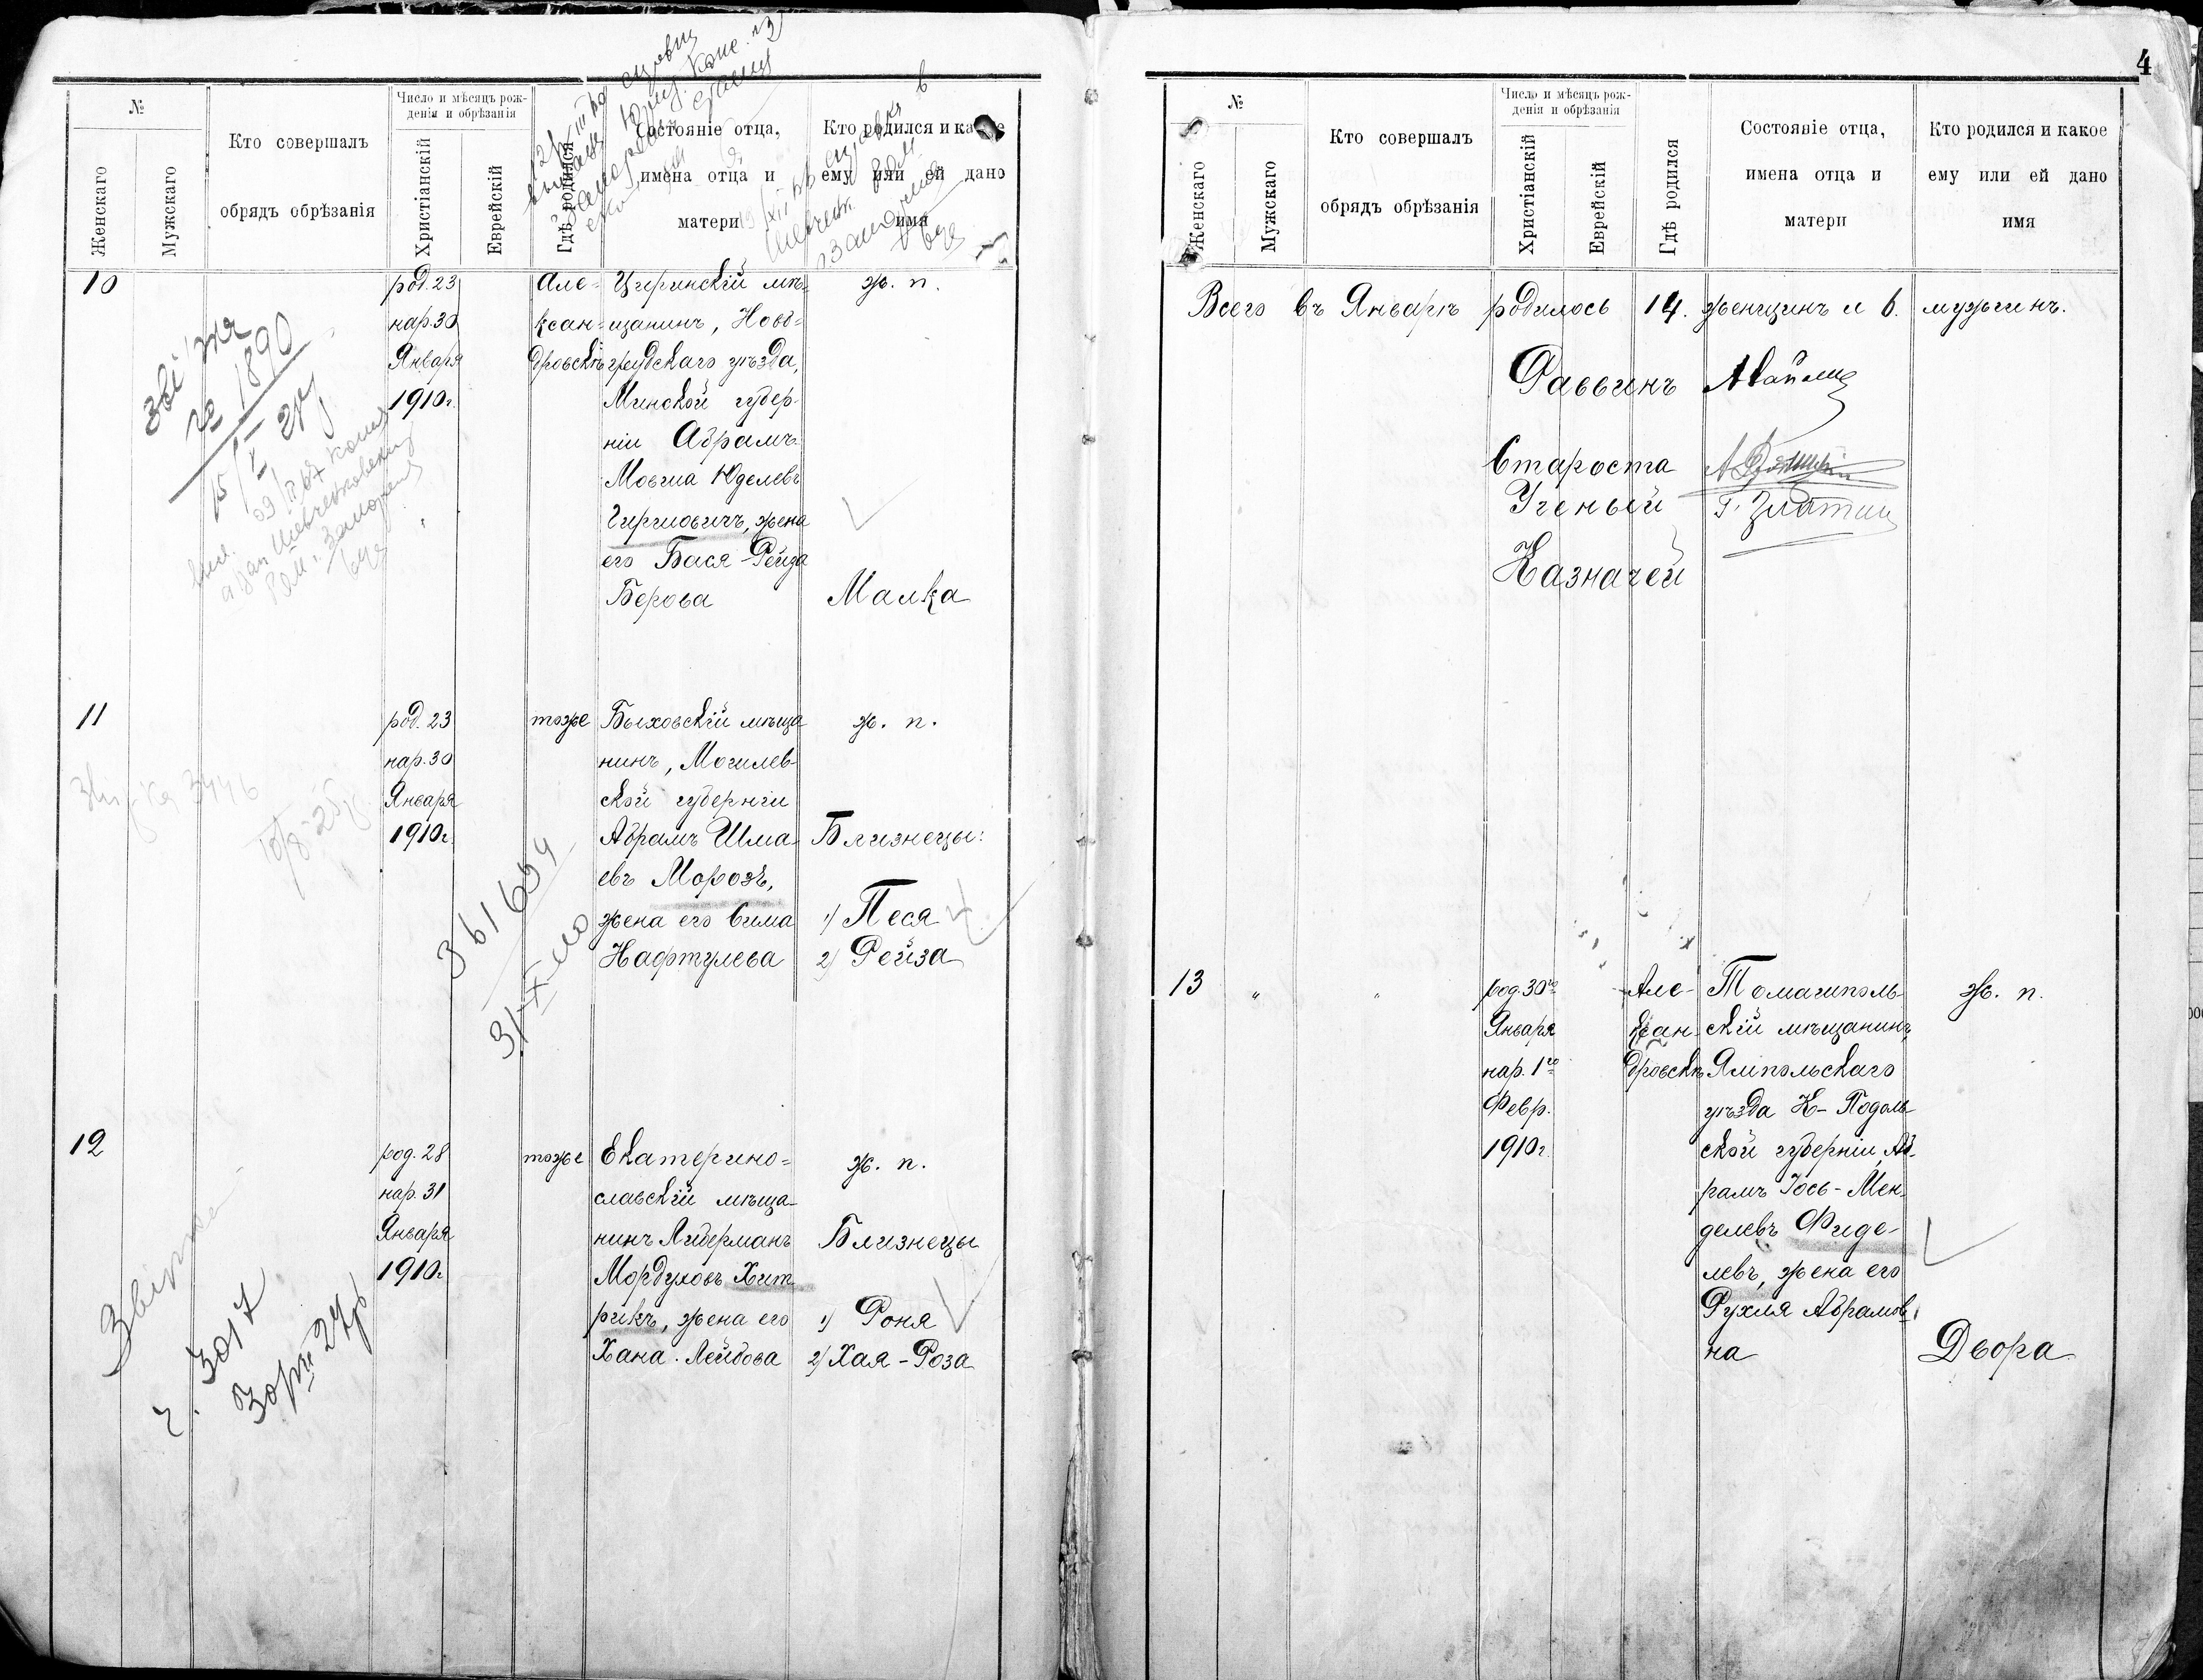 4
№
Женскаго
Мужскаго
Кто совершалъ
обрядъ обрѣзанія
Число и мѣсяцъ рож-
денія и обрѣзанія
Христіанскій
Еврейскій
Гдѣ родился
Состояніе отца,
имена отца и
матери
Кто родился и какое
ему или ей дано
имя
10
род. 23
нар. 30
Января
1910г.
Але-
ксан-
дровскѣ
Цыринскій мѣ-
щанинъ, Ново-
грудскаго уѣзда,
Минской губер-
ніи Абрамъ-
Мовша Юделевъ
Гиршовичъ, жена
его Бася-Рейза
Берова
ж. п.
Малка
1890
11
род. 23
нар. 30
Января
1910г.
тоже
Быховскій мѣща
нинъ, Могилев-
ской губерніи
Абрамъ Шма-
евъ Морозъ,
жена его Сима
Нафтулева
ж. п.
Близнецы:
1) Песя
2) Рейза
3446
361694
12
род. 28
нар. 31
Января
1910г.
тоже
Екатерино-
славскій мѣща-
нинъ Либерманъ
Мордуховъ Хит
рикъ, жена его
Хана Лейбова
ж. п.
Близнецы
1) Роня
2) Хая-Роза
ч. 3017
№
Женскаго
Мужскаго
Кто совершалъ
обрядъ обрѣзанія
Число и мѣсяцъ рож-
денія и обрѣзанія
Христіанскій
Еврейскій
Гдѣ родился
Состояніе отца,
имена отца и
матери
Кто родился и какое
ему или ей дано
имя
Всего въ Январѣ родилось 14. женщинъ и 6. мужчинъ.
Раввинъ
Староста
Ученый
Казначей
13 " "
род. 30го
Января
нар. 1го
Февр.
1910г.
Але-
ксан-
дровскѣ
Томашполь-
скій мѣщанинъ,
Ямпольскаго
уѣзда К-Подоль-
ской губерніи, Аб-
рамъ Іось-Мен-
делевъ Фиде-
левъ, жена его
Рухля Абрамов-
на
ж. п.
Двора